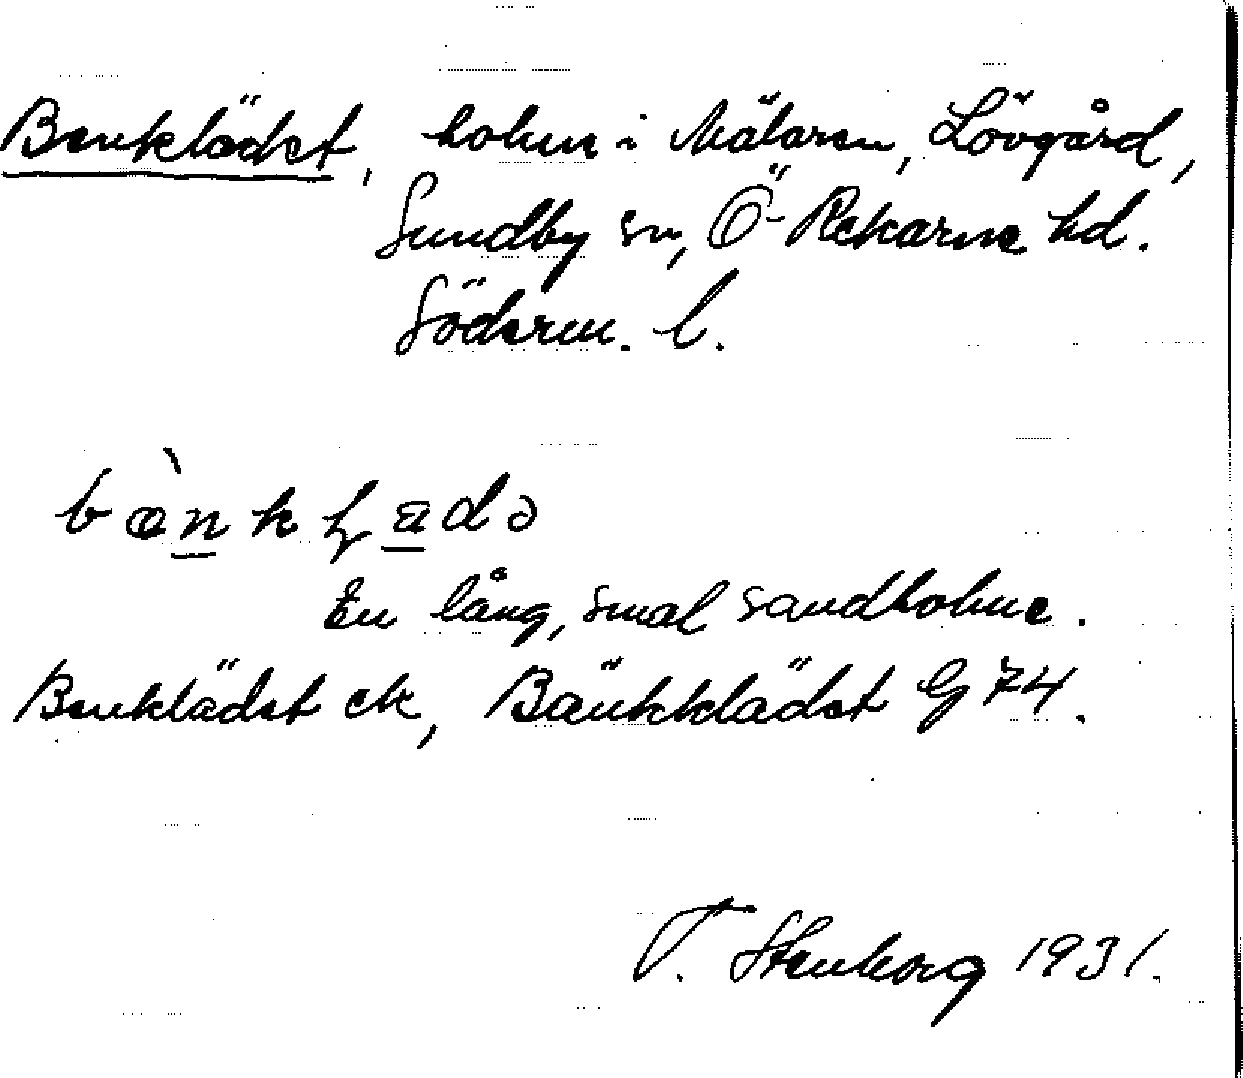 Benklädet, holm i Mälaren, Lövgård,
Sundby sn, Ö-Rekarne hd.
Söderm. l.
bænkɫädə
En lång, smal sandholme.
Benklädet ek, Bänkklädet G 74.
T. Stenborg 1931.